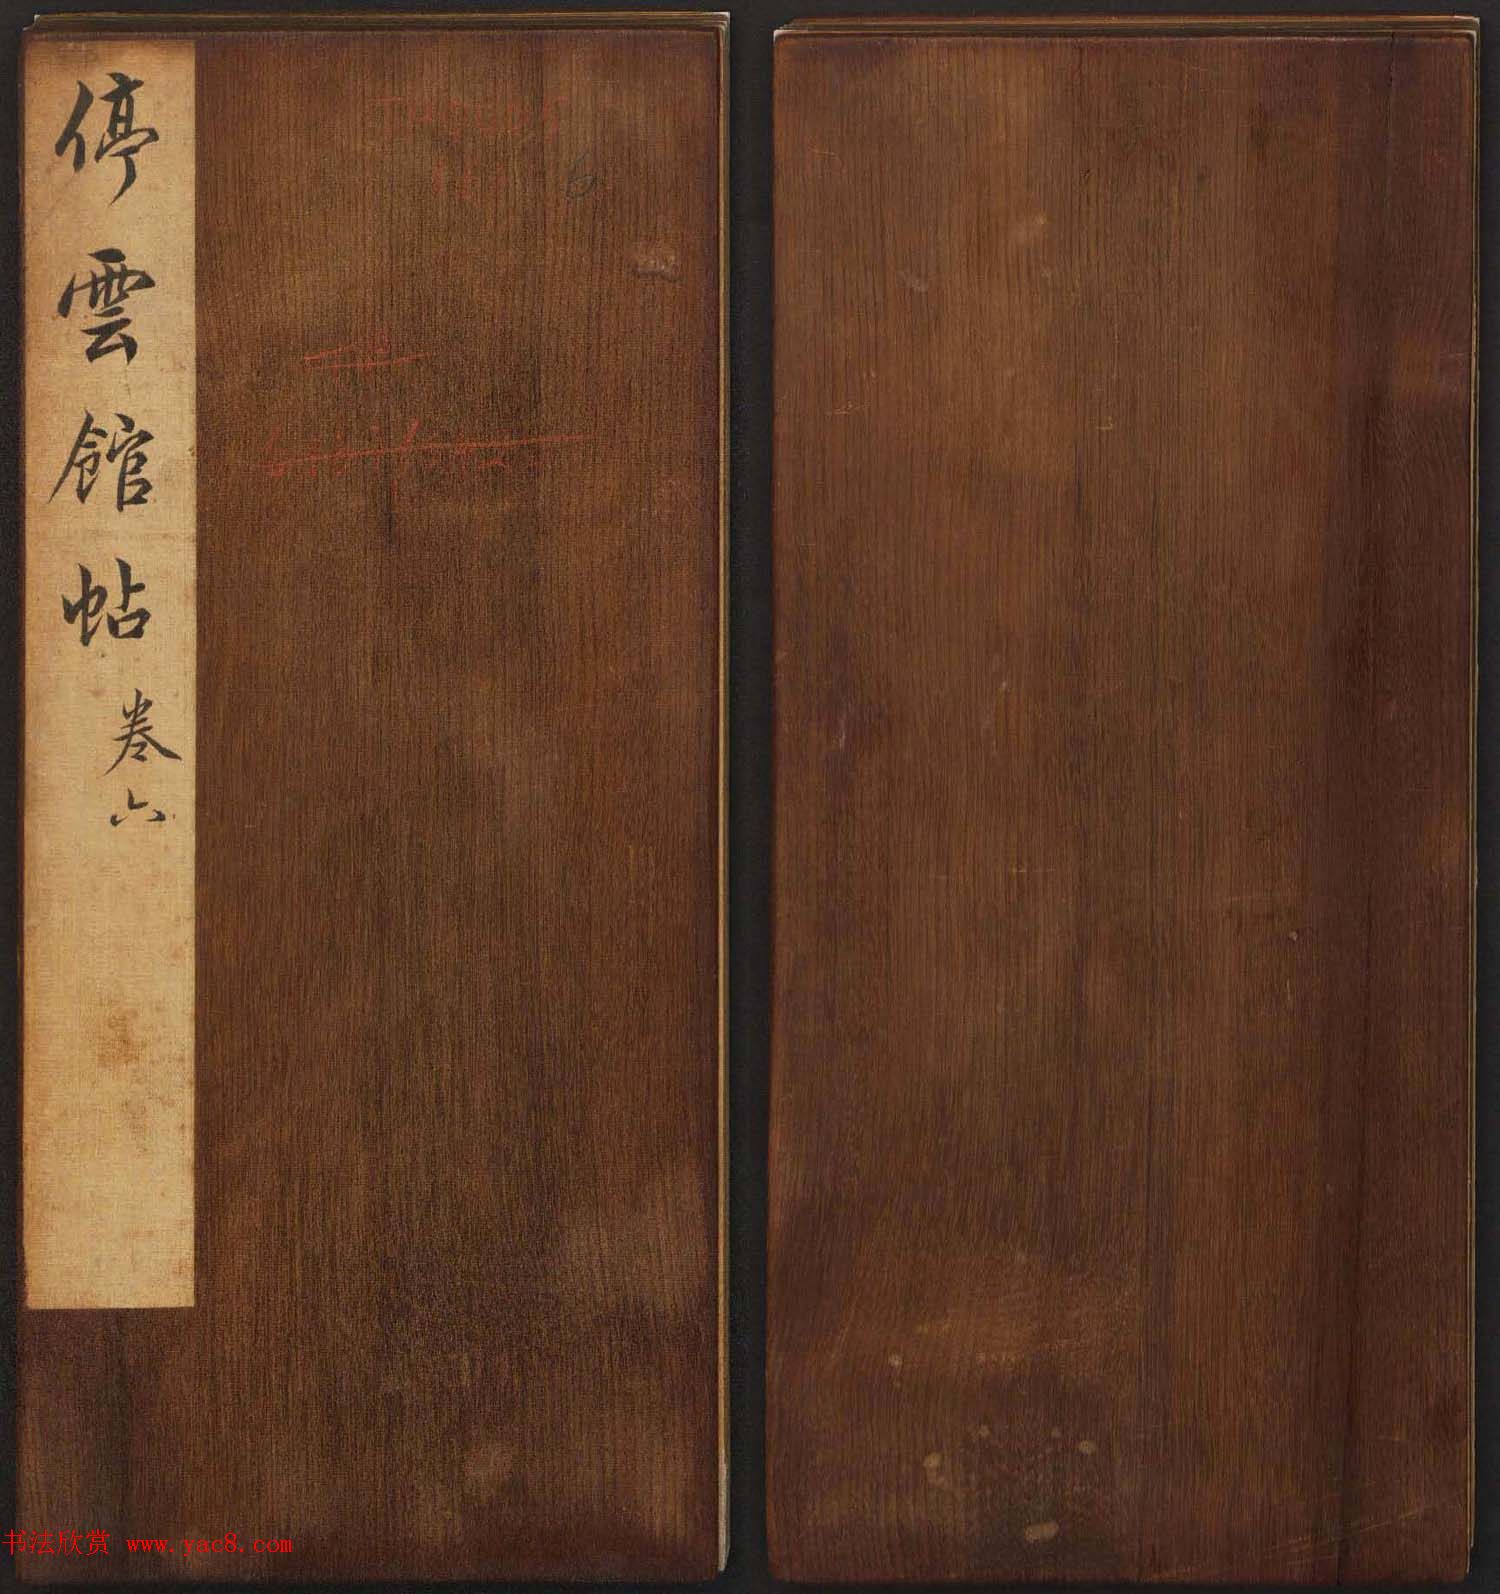 停雲館帖
卷六
6
书法欣赏 www.yac8.com